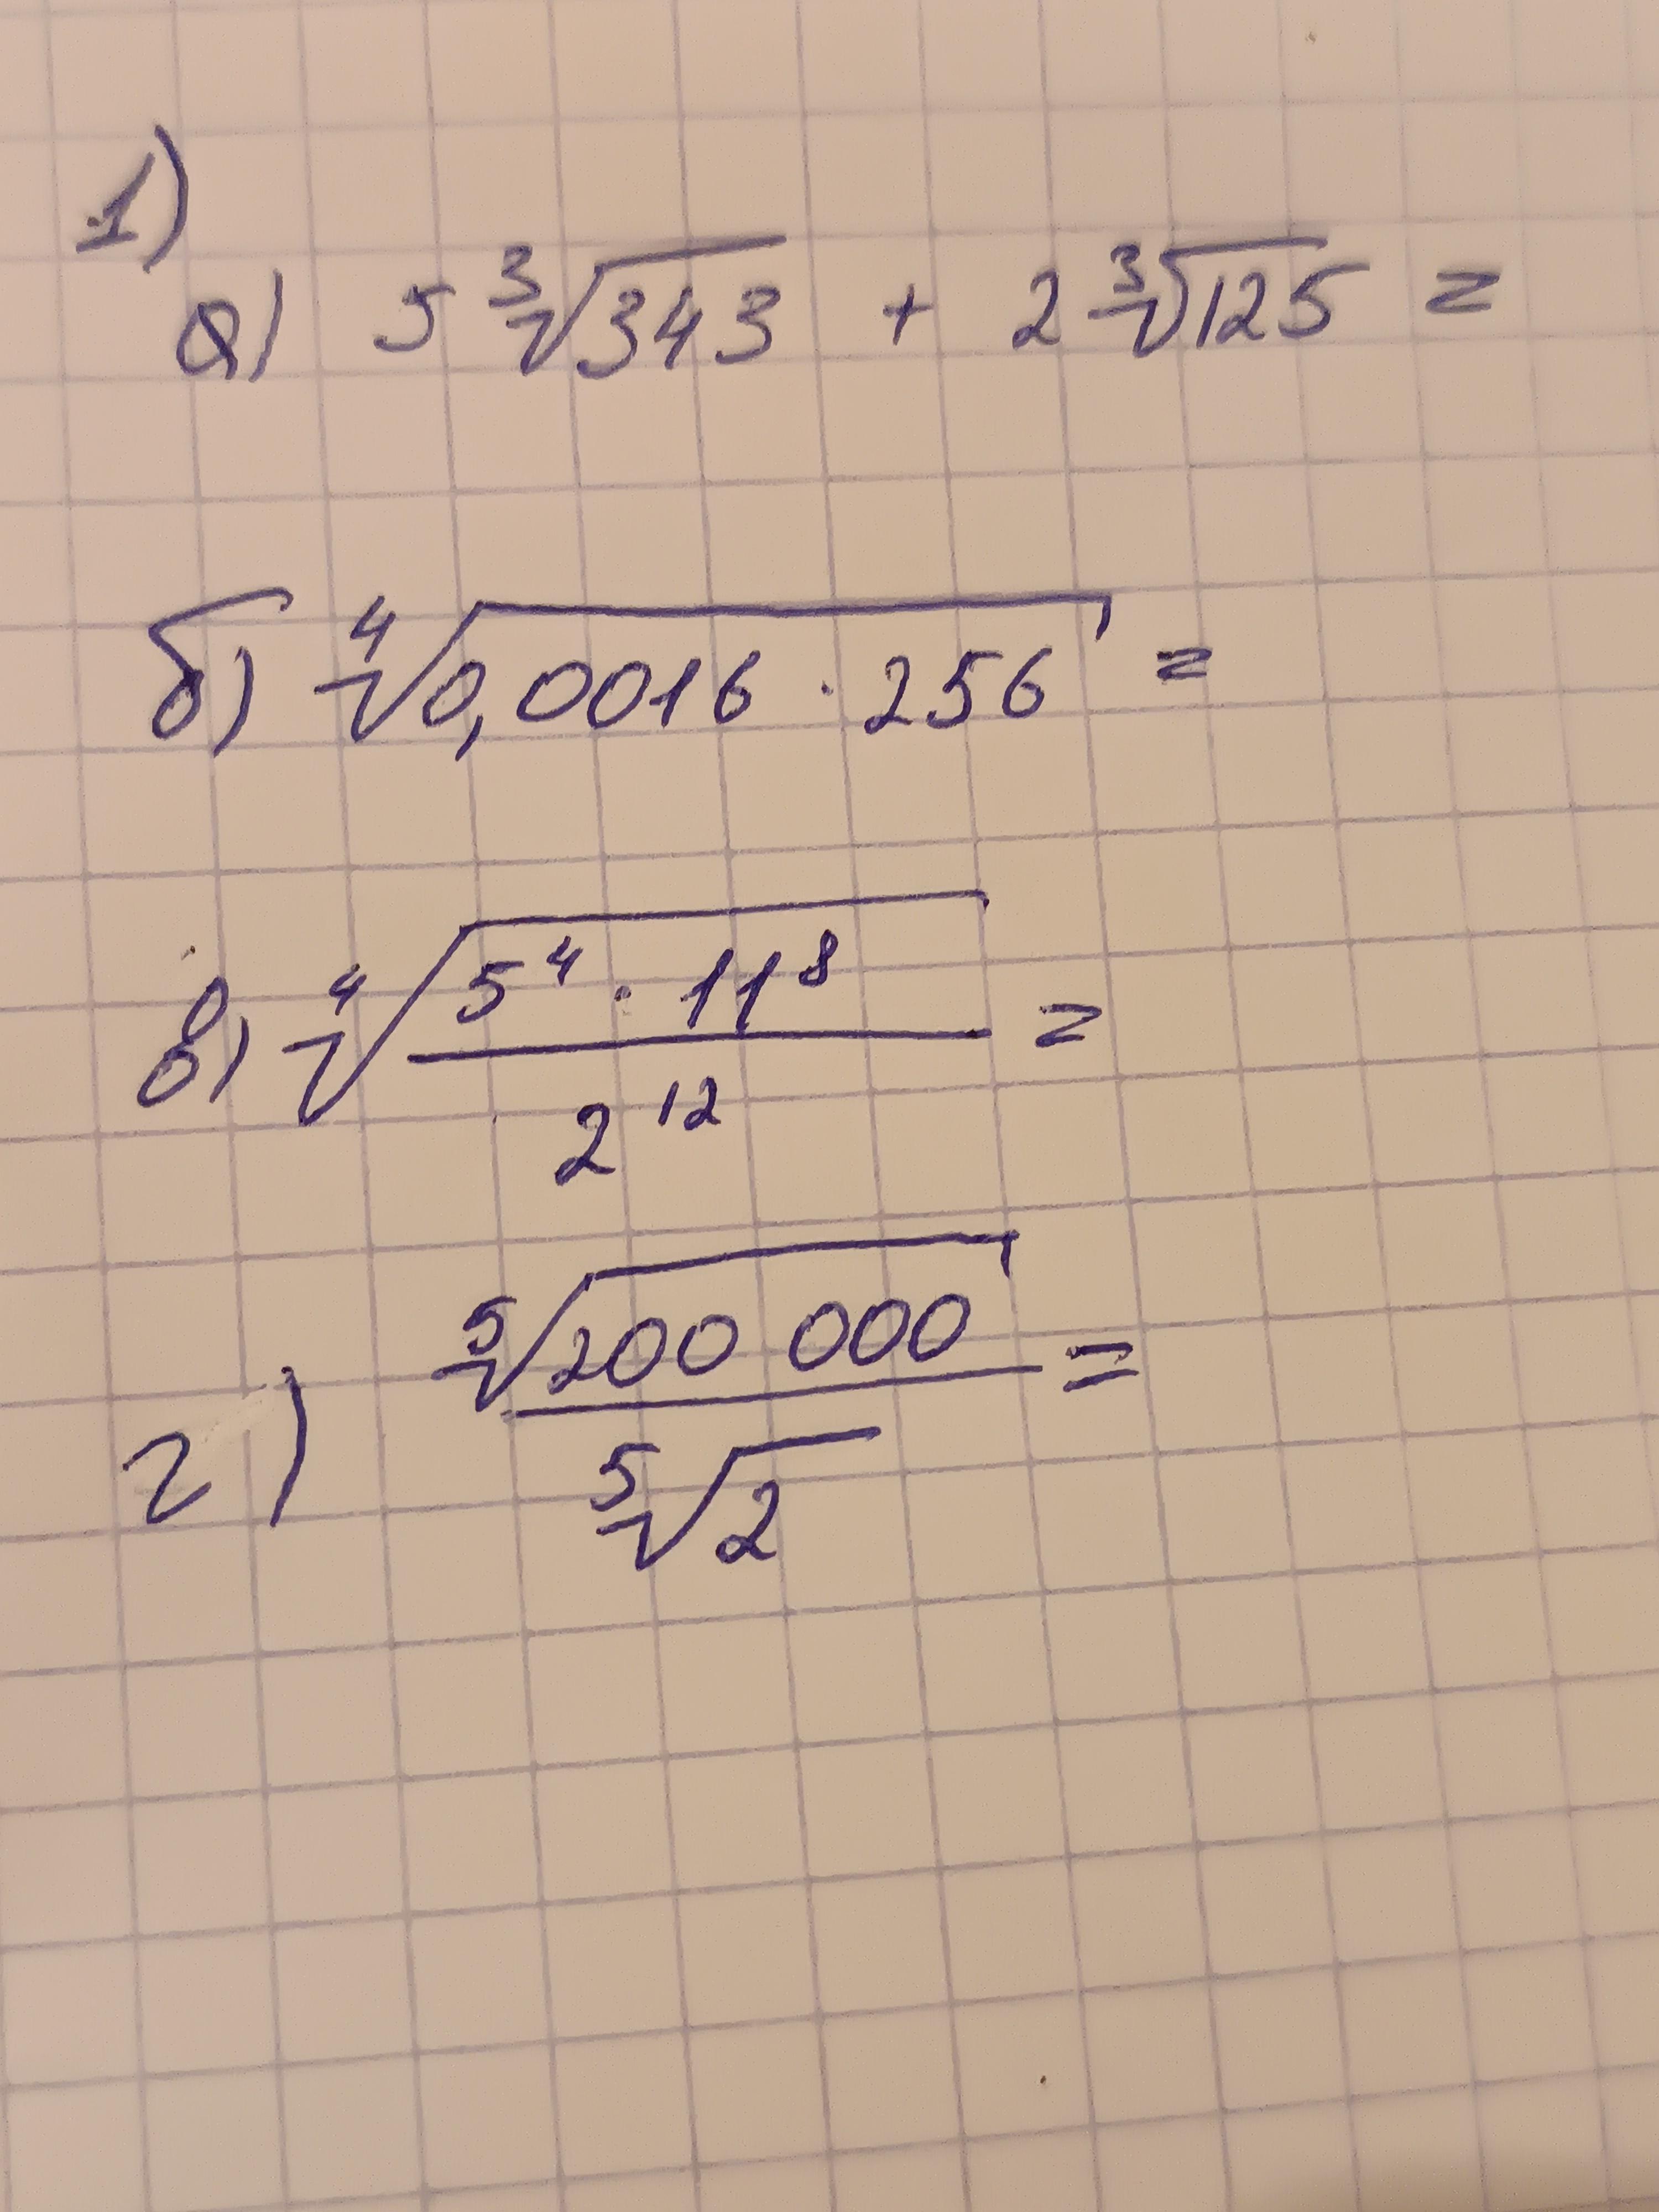 1)
а) 5 ∛343 + 2 ∛125 =
б) ∜(0,0016 · 256) =
в) ∜(5⁴ · 11⁸ / 2¹²) =
г) ⁵√200 000 / ⁵√2 =